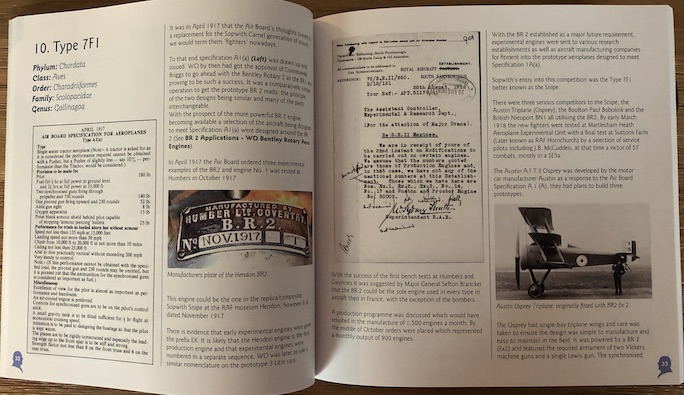 10. Type 7F1
Phylum: Chordata
Class: Aves
Order: Charadriiformes
Family: Scolopacidae
Genus: Gallinagoa
APRIL, 1917
AIR BOARD SPECIFICATION FOR AEROPLANES
Type A1(a)
Type
Single seater tractor aeroplane (Note:- A tractor is asked for as
it is considered the performance required cannot be obtained
with a Pusher, but a Pusher of slightly
performance than the Tractor, would be
Provision to be made for
180 lb
Fuel for ¼ hr at full power at ground level
and 2½ hrs at full power at 15,000 ft.
Two synchronised guns firing through
propeller and 750 rounds 140 lb
One pivoted gun firing upward and 250 rounds 32 lb
Aldis gun sight 8 lb
Oxygen apparatus 15 lb
Point blank armour shield behind pilot capable
of stopping armour piercing bullets 25 lb
Performance for trials as loaded above but without armour
Speed not less than 135 mph at 15,000 feet
Landing speed not more than 50 mph
Climb from 10,000 ft to 20,000 ft in not more than 10 mins
Ceiling not less than 25,000 ft
Able to dive practically vertical without exceeding 200 mph
Very handy to control
Miscellaneous
Excellence of view for the pilot is almost as important as
performance and handiness.
An air-cooled engine is preferred.
32
It was in April 1917 that the Air Board's thoughts turned to
a replacement for the Sopwith Camel generation of scouts,
we would term them 'fighters' nowadays.
To that end specification A1(a) (Left) was drawn up and
issued. WO by then had got the approval of Commander
Briggs to go ahead with the Bentley Rotary 2 as the
proving to be such a success. It was a comparatively simple
operation to get the prototype BR 2 ready, the principle
of the two designs being similar and many of the parts
interchangeable.
With the prospect of the more powerful BR 2 engine
becoming available a selection of the aircraft being designed
to meet Specification A1(a) were designed around the BR
2 (See BR 2 Applications - WO Bentley Rotary Aero
Engines)
In April 1917 the Air Board ordered three experimental
examples of the BR2 and engine No. 1 was tested at
Humbers in October 1917.
MANUFACTURED BY
HUMBER LTD, COVENTRY.
B.R.2
No NOV.1917
Manufacturers plate of the Hendon BR2.
This engine could be the one in the replica/composite
Sopwith Snipe at the RAF museum Hendon; however it is
dated November 1917.
There is evidence that early experimental engines were given
the prefix EX. It is likely that the Hendon engine is the first
production engine and that experimental engines were
numbered in a separate sequence. WO was later to use a
similar nomenclature on the prototype 3 Litre cars.
ROYAL AIRCRAFT ESTABLISHMENT,
SOUTH FARNBOROUGH,
28th August, 1918
The Assistant Controller,
Experimental & Research Dept.,
(For the attention of Major Evans.)
Re B.R.II Engines.
We are in receipt of yours of
the 22nd instant on Modifications to
be carried out on certain engines.
We assume that the numbers quoted
are those of Production Engines, and
in that case, we have not any of the
mentioned numbers at this Establish-
ment.
Superintendent R.A.E.
With the success of the first bench tests at Humbers and
Gwynnes it was suggested by Major General Sefton Brancker
that the BR 2 could be the sole engine used in every type in
aircraft then in France, with the exception of the bombers.
A production programme was discussed which would have
resulted in the manufacture of 1,500 engines a month. By
the middle of October orders were placed which represented
a monthly output of 900 engines.
With the BR 2 established as a major future requirement,
experimental engines were sent to various research
establishments as well as aircraft manufacturing companies
for fitment into the prototype aeroplanes designed to meet
Specification 1A(a).
Sopwith's entry into this competition was the Type 7F1
better known as the Snipe.
There were three serious competitors to the Snipe, the
Austin Triplane (Osprey), the Boulton Paul Bobolink and the
British Nieuport BN1 all utilising the BR2. By early March
1918 the new fighters were tested at Martlesham Heath
Aeroplane Experimental Unit with a final test at Suttons Farm
(Later known as RAF Hornchurch) by a selection of service
pilots including J.B. McCudden, at that time a victor of 57
combats, mostly in a SE5a.
The Austin A.F.T.3 Osprey was developed by the motor
car manufacturer Austin as a response to the Air Board
Specification A.I.(A), they had plans to build three
prototypes.
Austin Osprey Triplane, originally fitted with BR2 Ex 2.
The Osprey had single-bay triplane wings and care was
taken to ensure the design was simple to manufacture and
easy to maintain in the field. It was powered by a BR 2
(Ex2) and featured the required armament of two Vickers
machine guns and a single Lewis gun. The synchronised
33